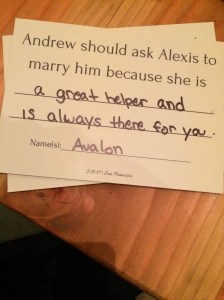 Andrew should ask Alexis to
marry him because she is
a great helper and
is always there for you.
Name(s): Avalon